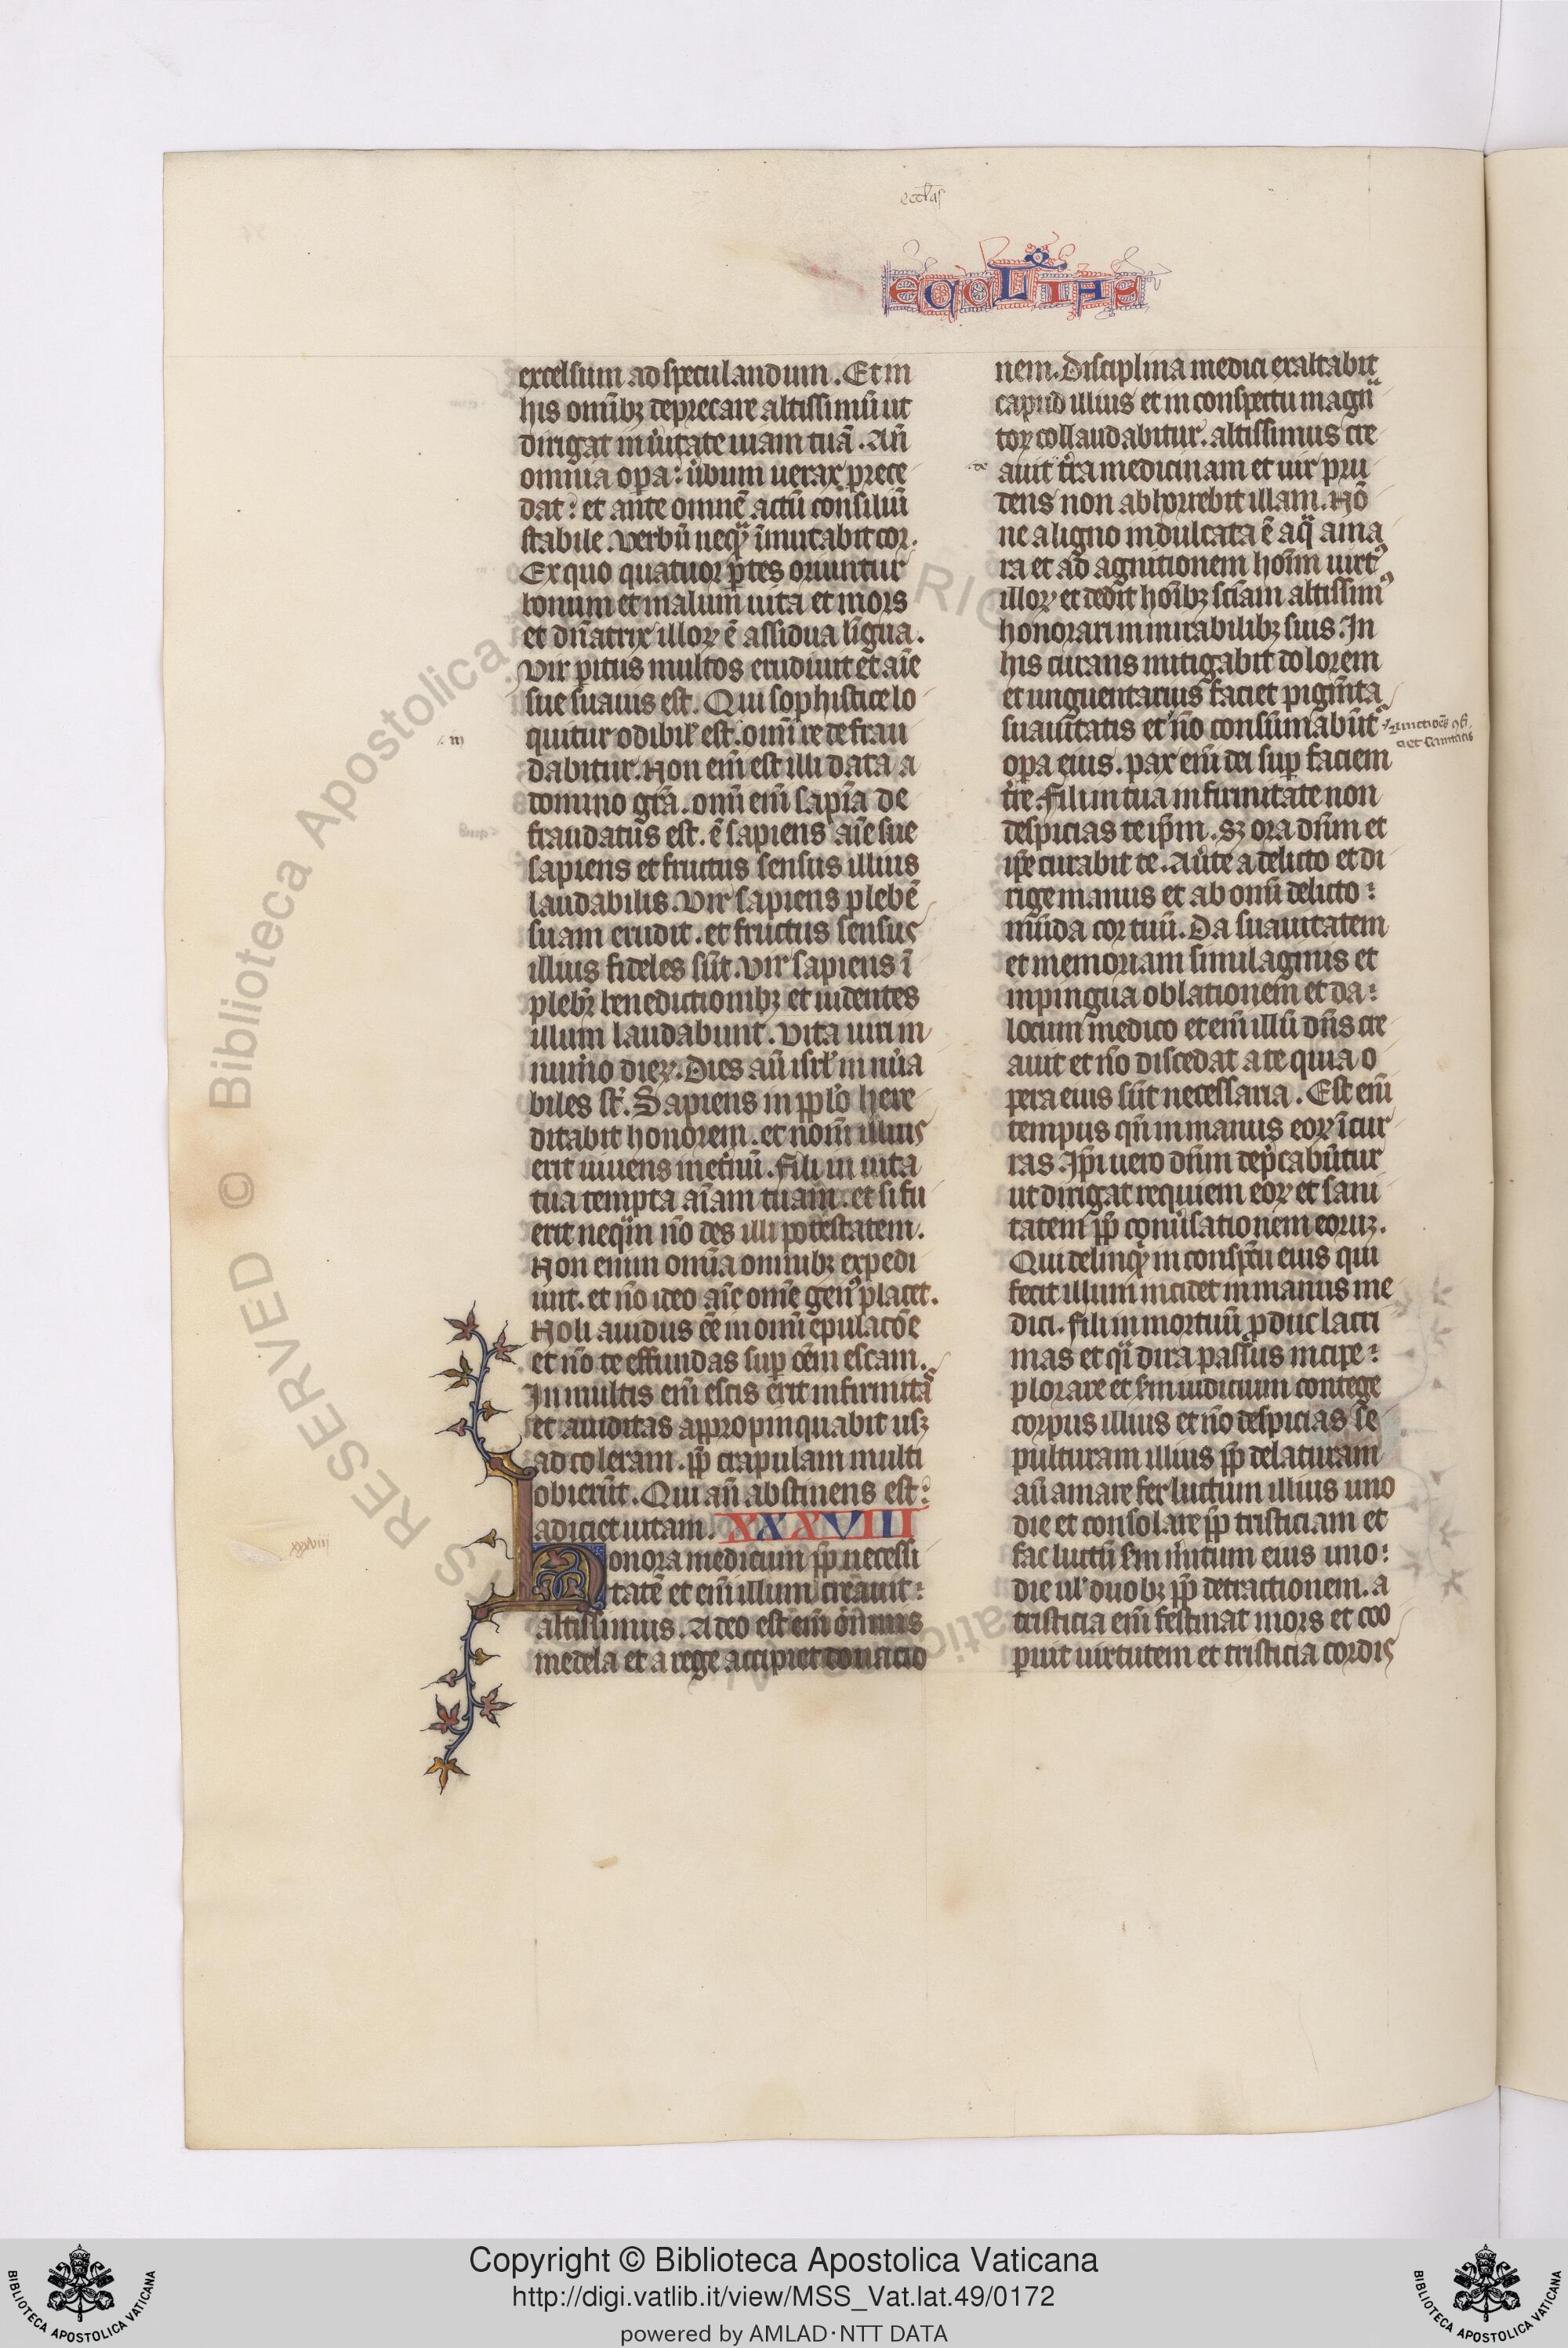 eccl'as
ECCLI'AS
excelsum ad speculandum. Et in
his om̃ibꝫ deprecare altissimũ ut
dirigat in ũitate uiam tuã. Añ
omnia oꝑa: ũbum uerax prece
dat: et ante omnẽ actũ consiliũ
stabile. Verbũ neqͣꝫ ĩmutabit cor.
Ex quo quatuor ꝑtes oriuntur
bonum et malum uita et mors
et dñatrix illoꝝ ẽ assidua lingua.
Vir ꝑitus multos erudiuit et aĩe
sue suauis est. Qui sophistice lo
quitur odibil' est. om̃i re defrau
dabitur. Non em̃ est illi data a
domino grã. om̃i em̃ sapiã de
fraudatus est. ẽ sapiens aĩe sue
sapiens et fructus sensus illius
laudabilis. Vir sapiens plebẽ
suam erudit. et fructus sensus
illius fideles sũt. Vir sapiens ĩ
plebit̃ benedictionibꝫ et uidentes
illum laudabunt. Vita uiri in
num̃o dieꝝ. Dies aũ isrl' in nũa
biles st̃. Sapiens in ppl'o here
ditabit honorem. et nom̃ illius
erit uiuens inet̃nũ. Fili in uita
tua tempta aĩam tuam. et si fu
erit neqͣm nõ des illi potestatem.
Non enim om̃ia omnibꝫ expedi
unt. et nõ ideo aĩe om̃e genꝰ placet.
Noli auidus ẽe in om̃i epulacõe
et nõ te effundas suꝑ õem escam.
In multis em̃ escis erit infirmitaˢ
et auiditas appropinquabit usꝫ
ad coleram. ꝓp̃ crapulam multi
obierũt. Qui aũ abstinens est:
adiciet uitam. XXXVIII
Honora medicum ꝓp̃ necessi
tatẽ et em̃ illum creauit:
altissimus. A deo est em̃ omnis
medela et a rege accipiet donacio
nem. Disciplina medici exaltabit
capud illius et in conspectu magñ
toꝝ collaudabitur. altissimus cre
auit t̃ra medicinam et uir pru
dens non abhorrebit illam. Nõ
ne a ligno indulcata ẽ aqͣ ama
ra et ad agnitionem hoĩm uirtꝰ
illoꝝ et dedit hoĩbꝫ sciam altissimꝰ
honorari in mirabilibꝫ suis. In
his curans mitigabit dolorem
et unguentarius faciet pigm̃ta
suauitatis et nõ consũmabũtͬ
oꝑa eius. pax em̃ dei suꝑ faciem
t̃re. Fili in tua infirmitate non
despicias te ip̃m. sꝫ ora dñm et
ip̃e curabit te. Aũte a delicto et di
rige manus et ab om̃i delicto:
mũda cor tuũ. Da suauitatem
et memoriam similaginis et
inpingua oblationem et da:
locum medico et em̃ illũ dñs cre
auit et nõ discedat a te quia o
pera eius sũt necessaria. Est em̃
tempus qñ in manus eoꝝ ĩcur
ras. Ip̃i uero dñm dep̃cabũtur
ut dirigat requiem eoꝝ et sani
tatem ꝓp̃ conũsationem eorum.
Qui delinqͥꝫ in consp̃tu eius qui
fecit illum incidet in manus me
dici. Fili in mortuũ ꝓduc lacri
mas et qͣi dira passus incipe:
plorare et s̃m iudicium contege
corpus illius et nõ despicias se
pulturam illius ꝓp̃ delaturam
aũ amare fer luctum illius uno
die et consolare ꝓp̃ tristiciam et
fac luctũ s̃m m̃itum eius uno:
die ul' duobꝫ ꝓp̃ detractionem. a
tristicia em̃ festinat mors et coo
perit uirtutem et tristicia cordis
Copyright © Biblioteca Apostolica Vaticana
http://digi.vatlib.it/view/MSS_Vat.lat.49/0172
powered by AMLAD·NTT DATA
BIBLIOTECA APOSTOLICA VATICANA
BIBLIOTECA APOSTOLICA VATICANA